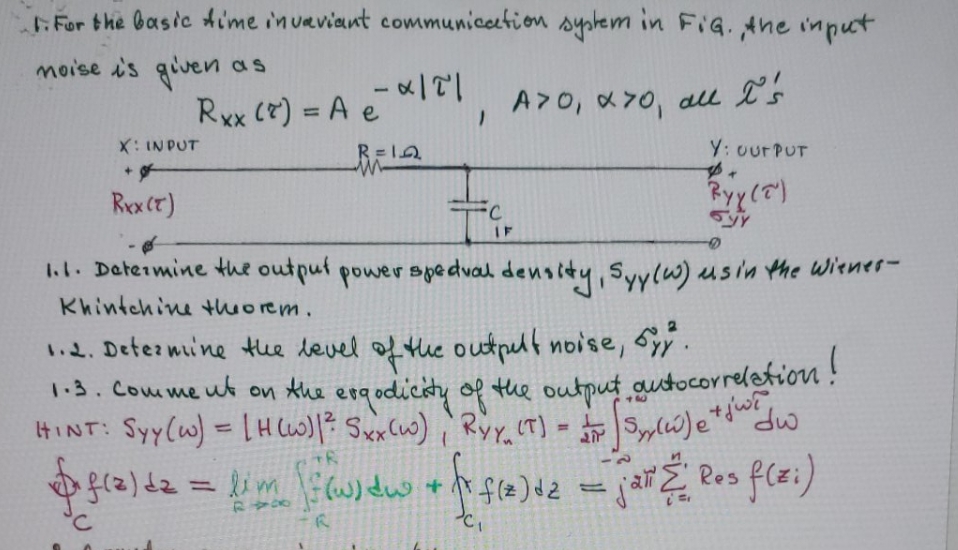 1. For the basic time invariant communication system in FIG., the input
noise is given as
Rxx (τ) = A e^{-α|τ|}, A>0, α>0, all τ's
X: INPUT
R=1Ω
Y: OUTPUT
+
+
Rxx(τ)
Ryy(τ)
C
σyy
1F
-
1.1. Determine the output power spedval density, Syy(ω) usin the Wiener-
Khintchine theorem.
1.2. Determine the level of the output noise, σyy².
1.3. Comment on the ergodicity of the output autocorrelation!
HINT: Syy(ω) = |H(ω)|² Sxx(ω), Ryy(τ) = 1/2π ∫_{-∞}^{+∞} Syy(ω) e^{+jωτ} dω
∮_C f(z) dz = lim_{R→∞} ∫_{-R}^{+R} f(ω) dω + ∮_{C₁} f(z) dz = j2π Σ_{i=1}^{n} Res f(zᵢ)